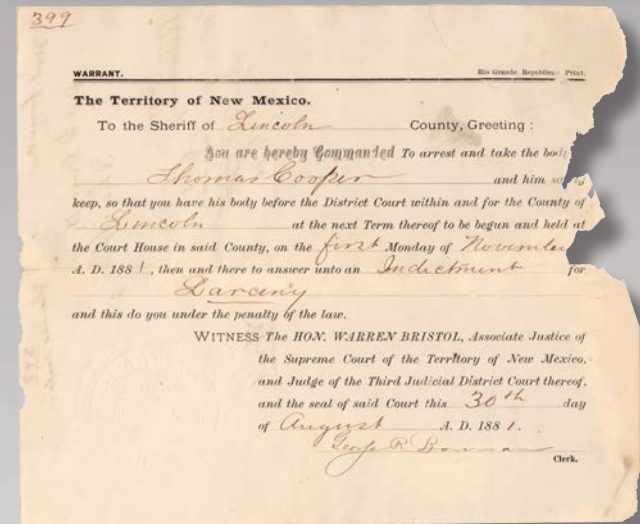 399
WARRANT. Rio Grande Republican Print.
The Territory of New Mexico.
To the Sheriff of Lincoln County, Greeting :
You are hereby Commanded To arrest and take the body
Thomas Cooper and him
keep, so that you have his body before the District Court within and for the County of
Lincoln at the next Term thereof to be begun and held at
the Court House in said County, on the first Monday of November
A. D. 1881, then and there to answer unto an Indictment for
Larceny
and this do you under the penalty of the law.
WITNESS The HON. WARREN BRISTOL, Associate Justice of
the Supreme Court of the Territory of New Mexico,
and Judge of the Third Judicial District Court thereof,
and the seal of said Court this 30th day
of August A. D. 1881.
George R. Bowman
Clerk.